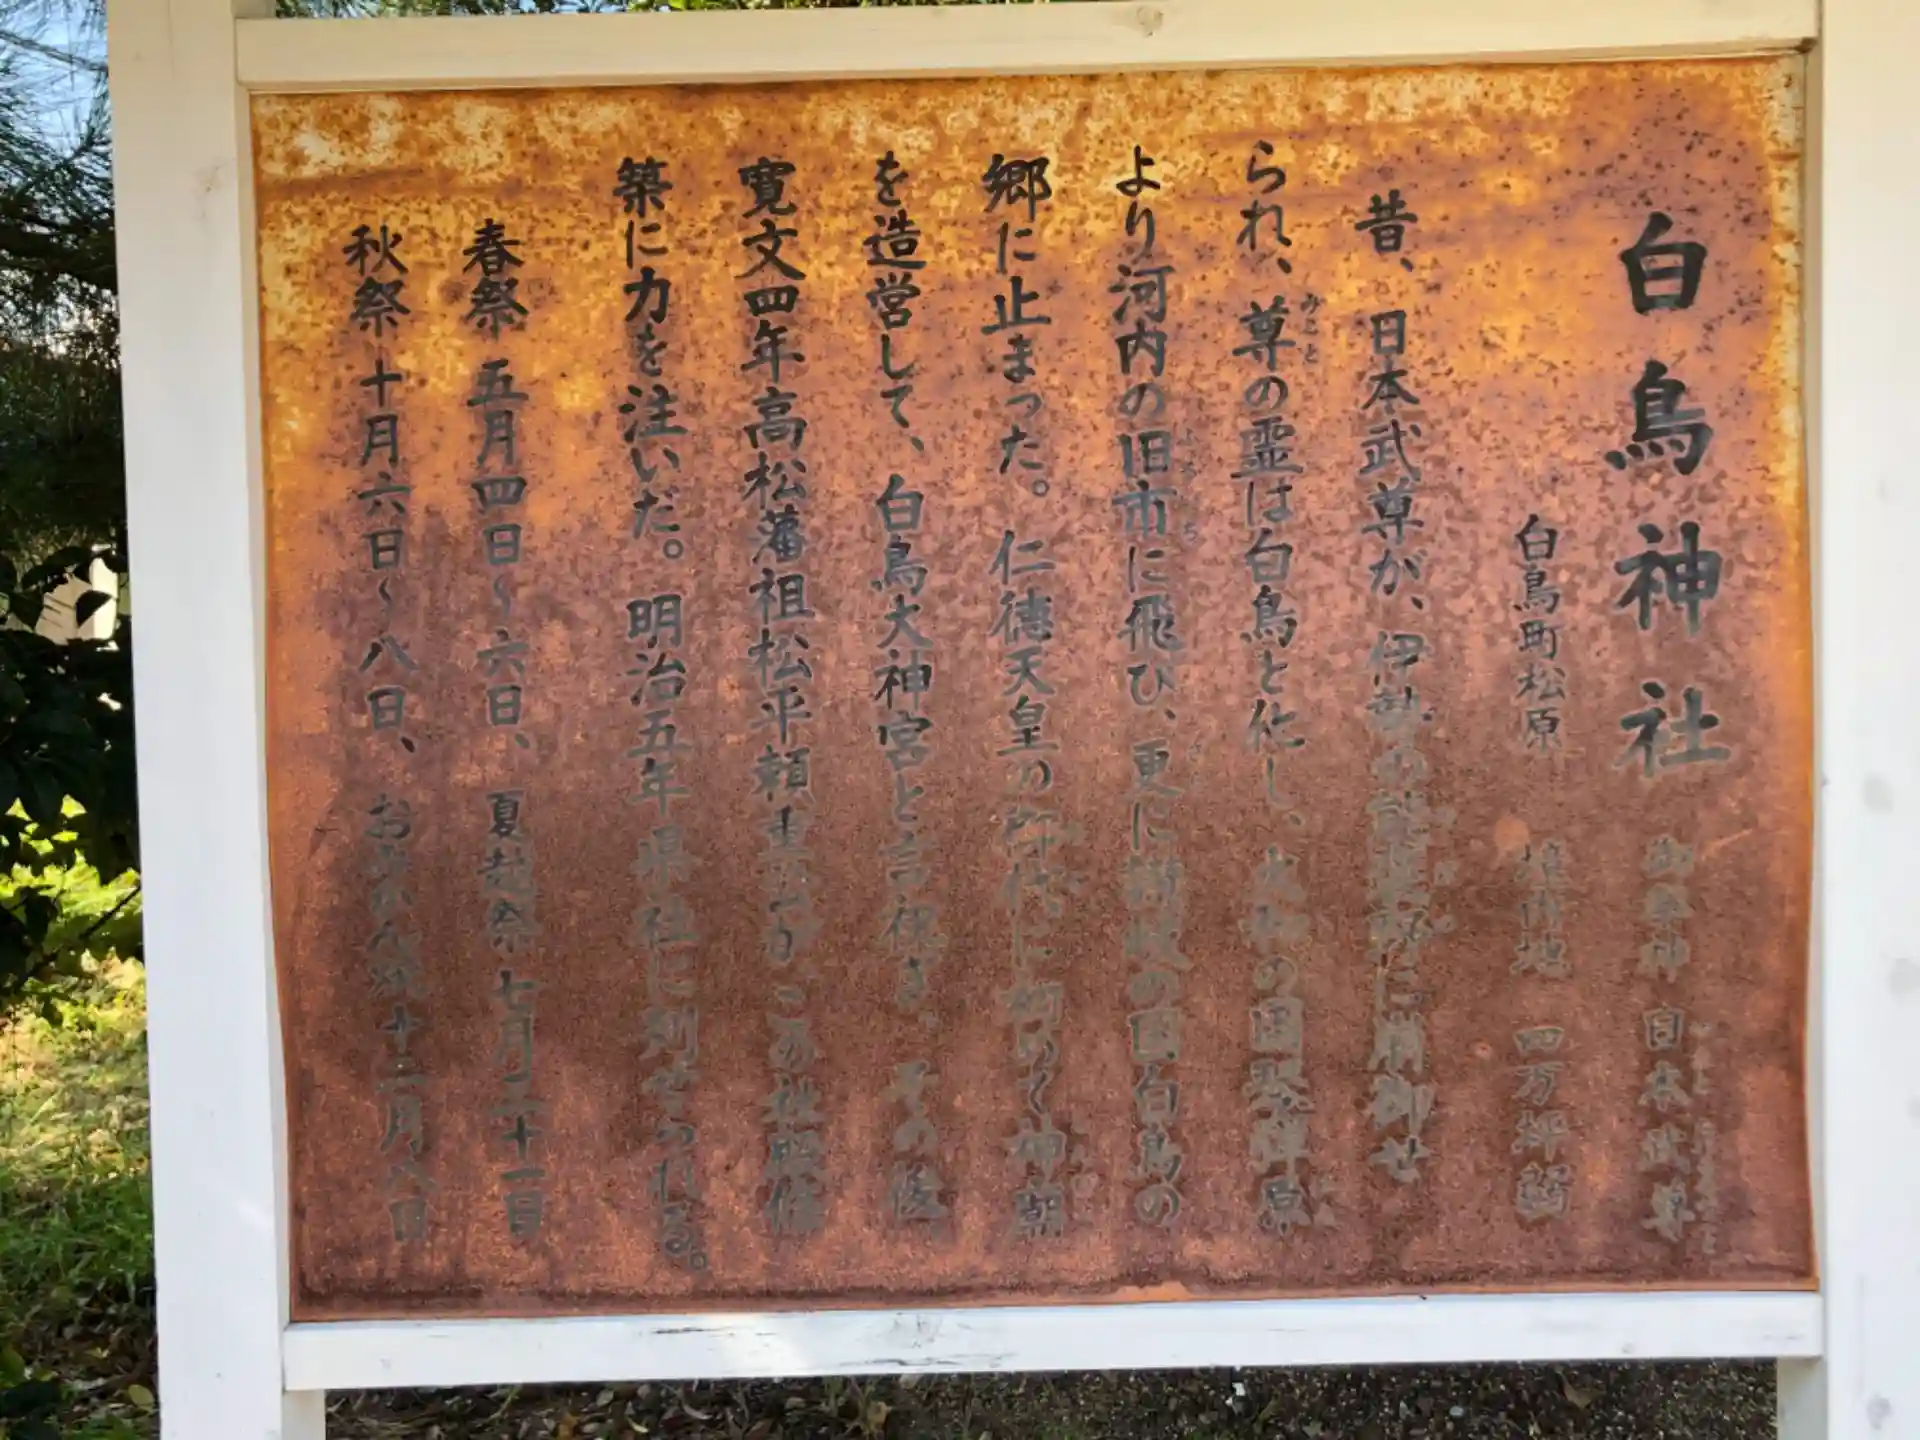 白鳥神社 御祭神 日本武尊
白鳥町松原 境内地 四万坪
昔、日本武尊が、伊勢の能褒野に崩御せ
られ、尊の霊は白鳥と化し、大和の国琴弾原
みこと
より河内の旧市に飛び、更に讃岐の国白鳥の
郷に止まった。仁徳天皇の御代に初めて神廟
を造営して、白鳥大神宮と言祝ぎ、その後、
寛文四年高松藩祖松平頼重公が、この社殿修
築に力を注いだ。明治五年県社に列せられる。
春祭 五月四日〜六日、夏越祭 七月二十一日
秋祭 十月六日〜八日、十二月八日